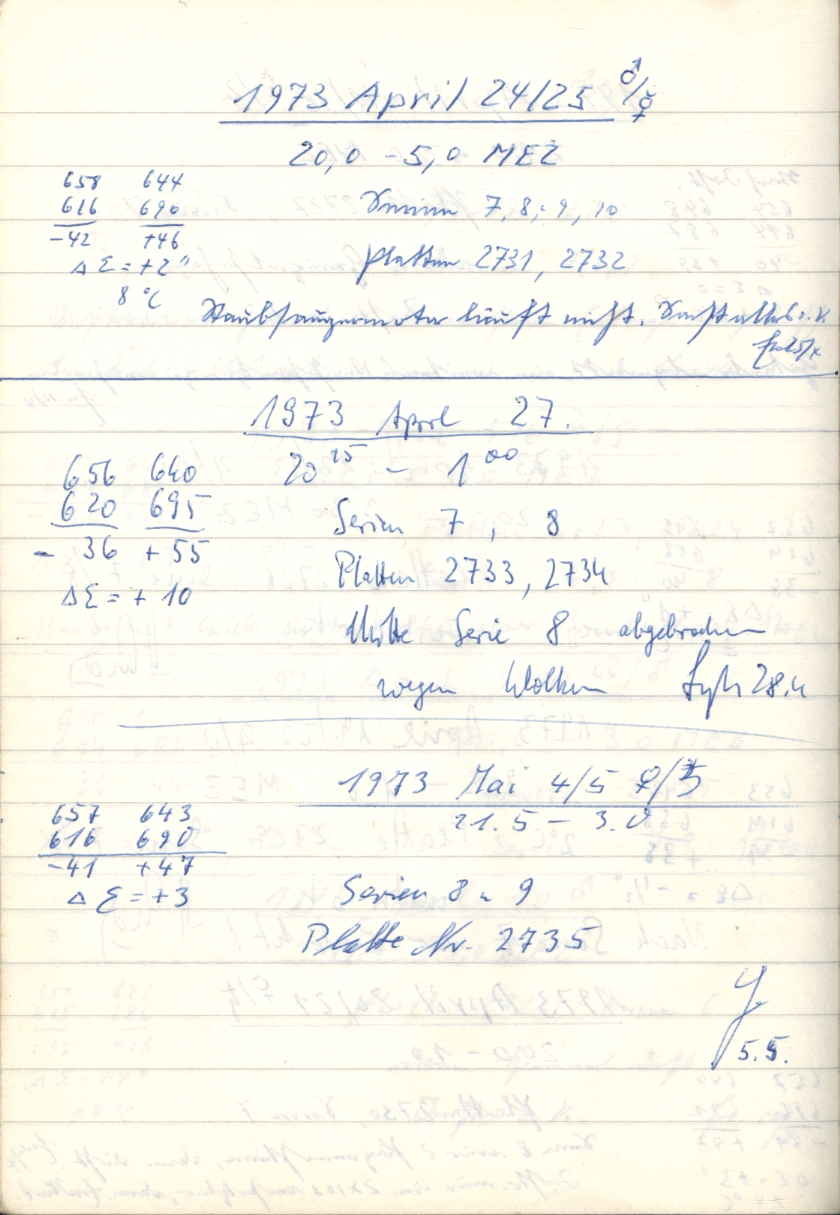 1973 April 24/25 ♂/☿
20,0 – 5,0 MEZ
658 644
616 690
-42 +46
Δ Σ = +2"
8 °C
Serien 7, 8, 9, 10
Platten 2731, 2732
Staubsaugermotor läuft nicht. Sonst alles o.k.
1973 April 27.
20 15 – 1 00
656 640
620 695
- 36 + 55
Δ Σ = + 10
Serien 7, 8
Platten 2733, 2734
Mitte Serie 8 abgebrochen
wegen Wolken 28.4
1973 Mai 4/5 ♀/♄
21.5 – 3.0
657 643
616 690
-41 +47
Δ Σ = +3
Serien 8 u 9
Platte Nr. 2735
5.5.